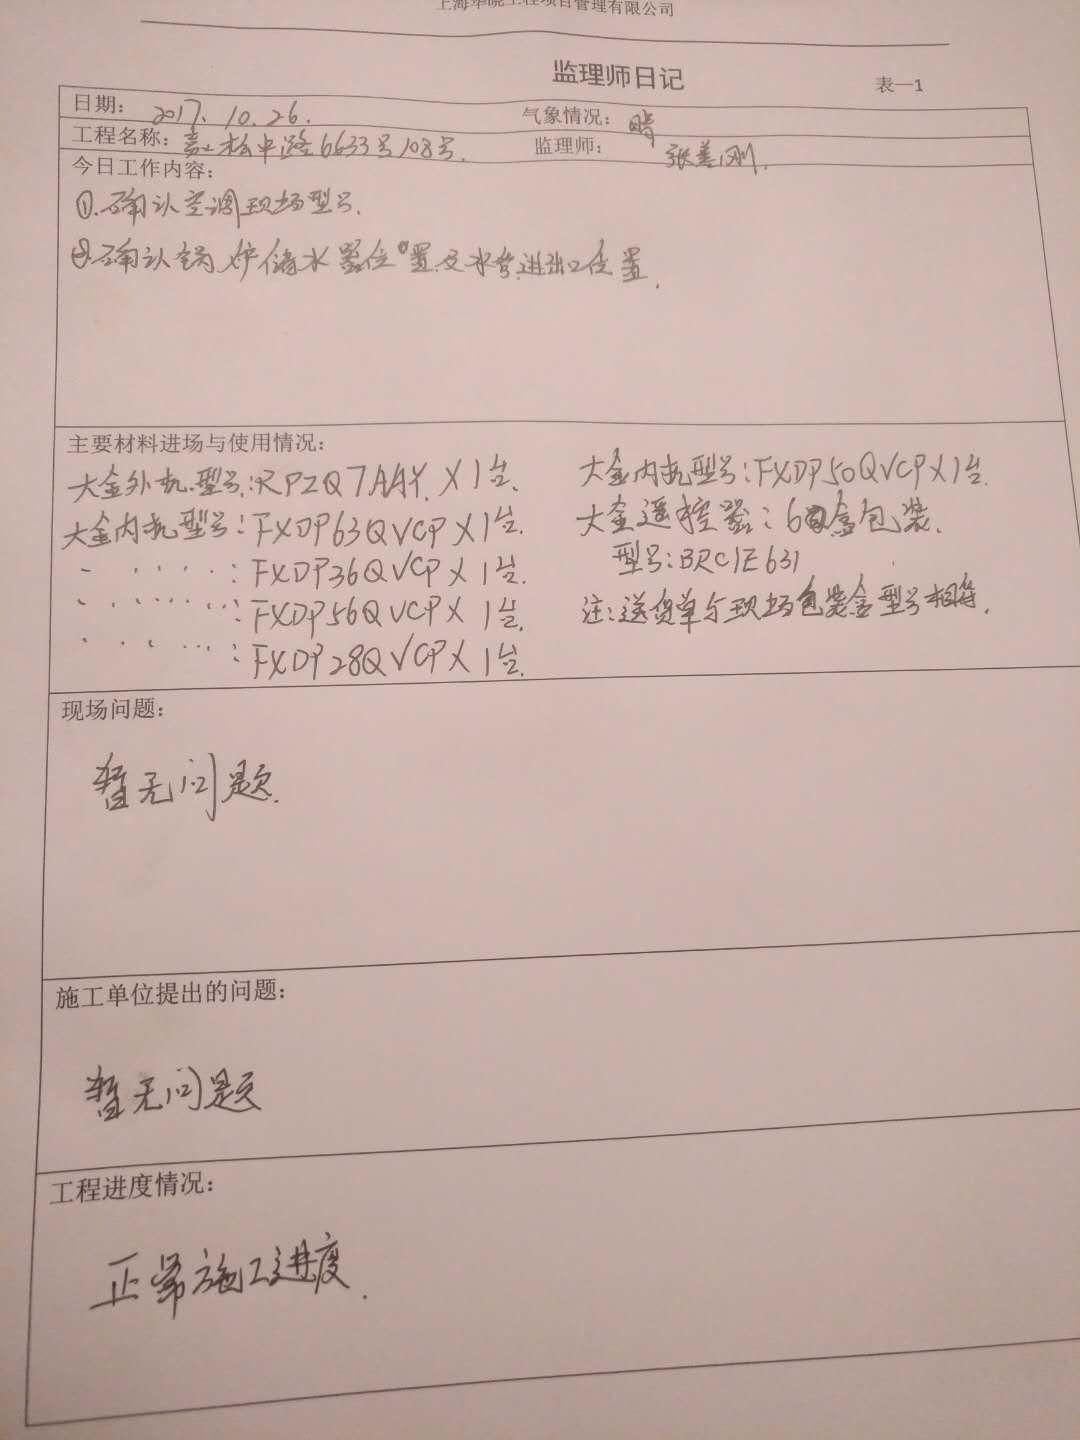 上海华晓工程项目管理有限公司
监理师日记
表一1
日期: 2017. 10. 26. 气象情况: 晴
工程名称: 嘉松中路6633号108号. 监理师: 张善刚.
今日工作内容:
①.确认空调现场型号.
②确认锅炉储水器位置及水管进出口位置.
主要材料进场与使用情况:
大金外机型号:RPZQ7AAY. X 1台.
大金内机型号:FXDP63QVCP X 1台.
〃 ‥‥: FXDP36QVCP X 1台.
〃 ‥‥: FXDP56QVCP X 1台.
〃 ‥‥: FXDP28QVCP X 1台.
大金内机型号:FXDP50QVCP X 1台.
大金遥控器: 6盒包装.
型号:BRC1E631
注:送货单与现场包装盒型号相符.
现场问题:
暂无问题.
施工单位提出的问题:
暂无问题
工程进度情况:
正常施工进度.